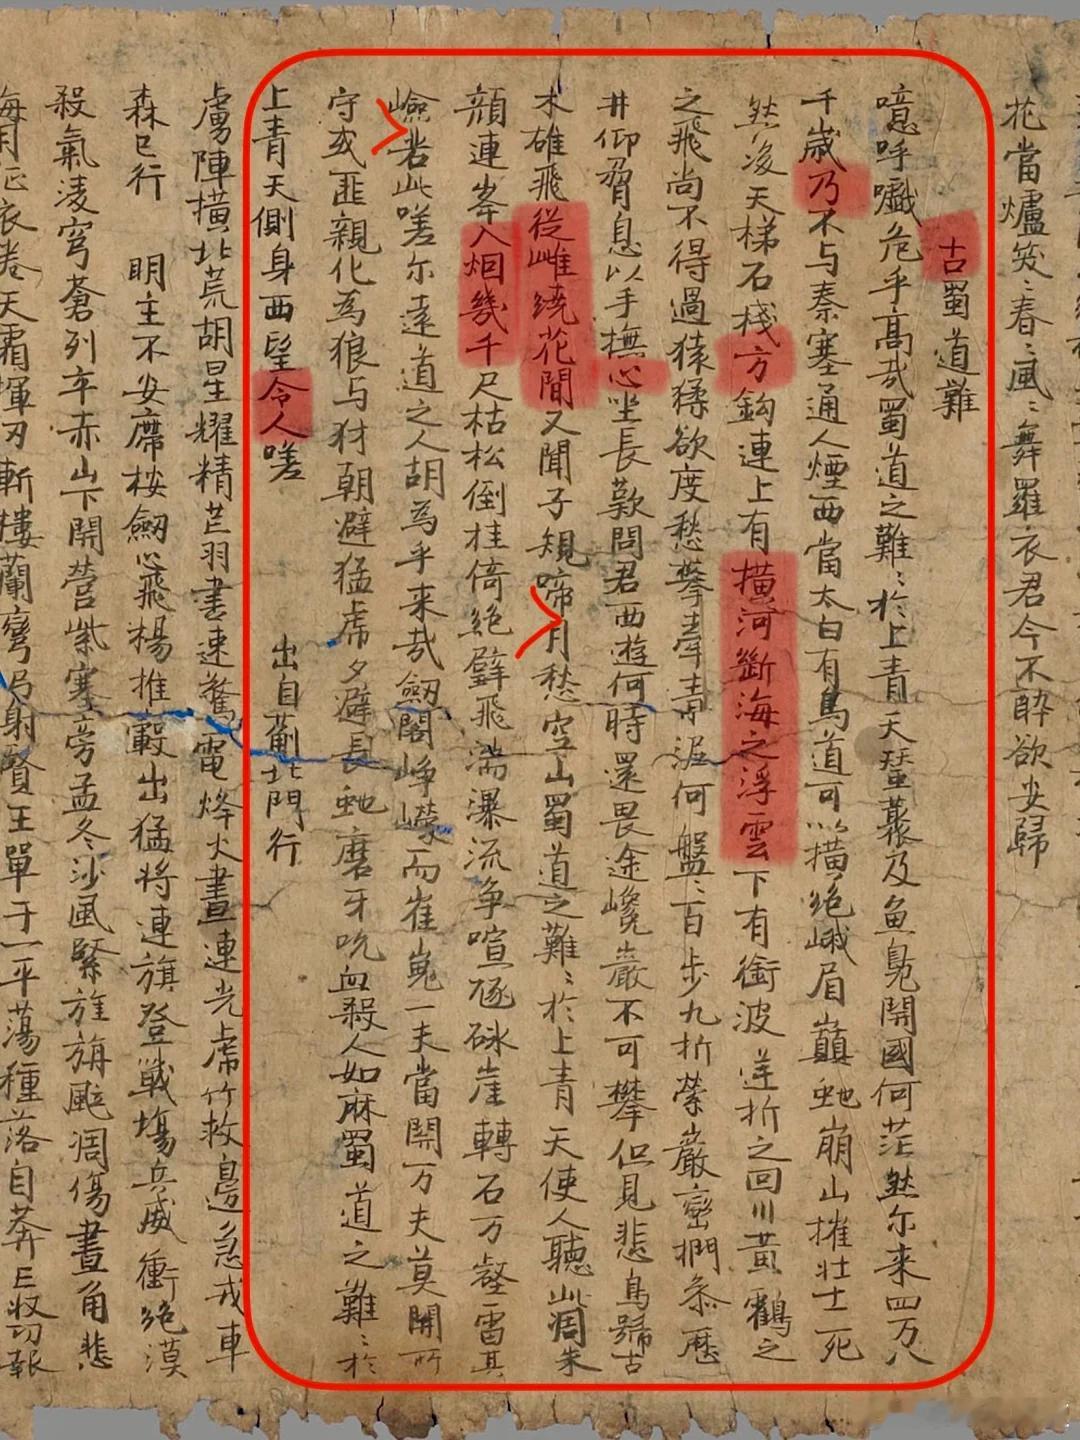 花當爐笑〻春〻風〻舞羅衣君今不醉欲安歸
古蜀道難
噫呼嚱危乎高哉蜀道之難〻於上青天蠶叢及魚鳧開國何茫然尔来四万八
千歳乃不与秦塞通人煙西當太白有鳥道可以撗絶峨眉巔虵崩山摧壮士死
然後天梯石栈方鈎連上有撗河斷海之浮雲下有衝波逆折之回川黄鶴之
之飛尚不得過猿猱欲度愁攀牽青泥何盤〻百步九折縈巖巒捫叅歴
井仰脅息以手撫心坐長歎問君西遊何時還畏途巉巖不可攀但見悲鳥號古
木雄飛從雌繞花間又聞子規啼月愁空山蜀道之難〻於上青天使人聽此凋朱
顔連峯入烟幾千尺枯松倒挂倚絶壁飛湍瀑流争喧豗砯崖轉石万壑雷其
嶮若此嗟尔遠道之人胡為乎来哉劒閣崢嶸而崔嵬一夫當開万夫莫開所
守或匪親化為狼与犲朝避猛虎夕避長虵磨牙吮血殺人如麻蜀道之難〻於
上青天側身西望令人嗟 出自薊北門行
虜陣撗北荒胡星耀精芒羽書速驚電烽火晝連光虎竹救邊急戎車
森已行 明主不安席桉劒心飛楊推轂出猛将連旗登戦塲兵威衝絶漠
殺氣淩穹蒼列卒赤山下開營紫塞旁孟冬沙風緊旌旗颯凋傷晝角悲
海月征衣卷天霜揮刃斬樓蘭彎弓射賢王單于一平蕩種落自奔亡収功報